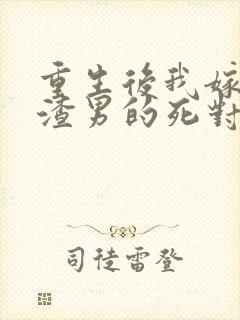 重生後我嫁
渣男的死對
司徒雷登